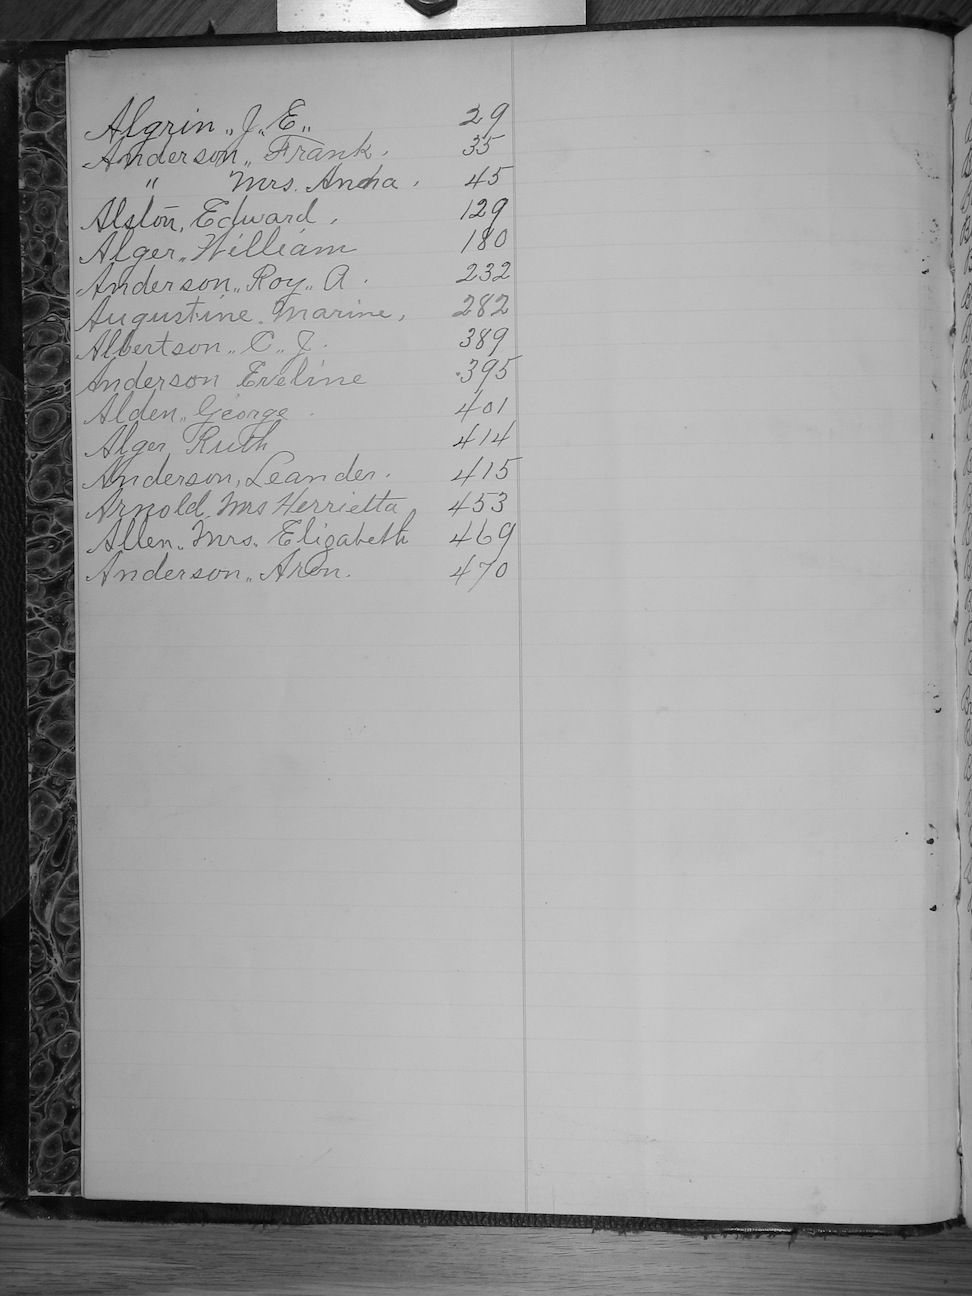 Algrin,, J,, E,, 29
Anderson,, Frank. 35
" Mrs. Anna. 45
Alston, Edward. 129
Alger,, William 180
Anderson,, Roy,, A. 232
Augustine. Marine, 282
Albertson,, C,, J. 389
Anderson Eveline 395
Alden,, George. 401
Alger, Ruth 414
Anderson, Leander. 415
Arnold, Mrs Herrietta 453
Allen. Mrs. Elizabeth 469
Anderson,, Aron. 470